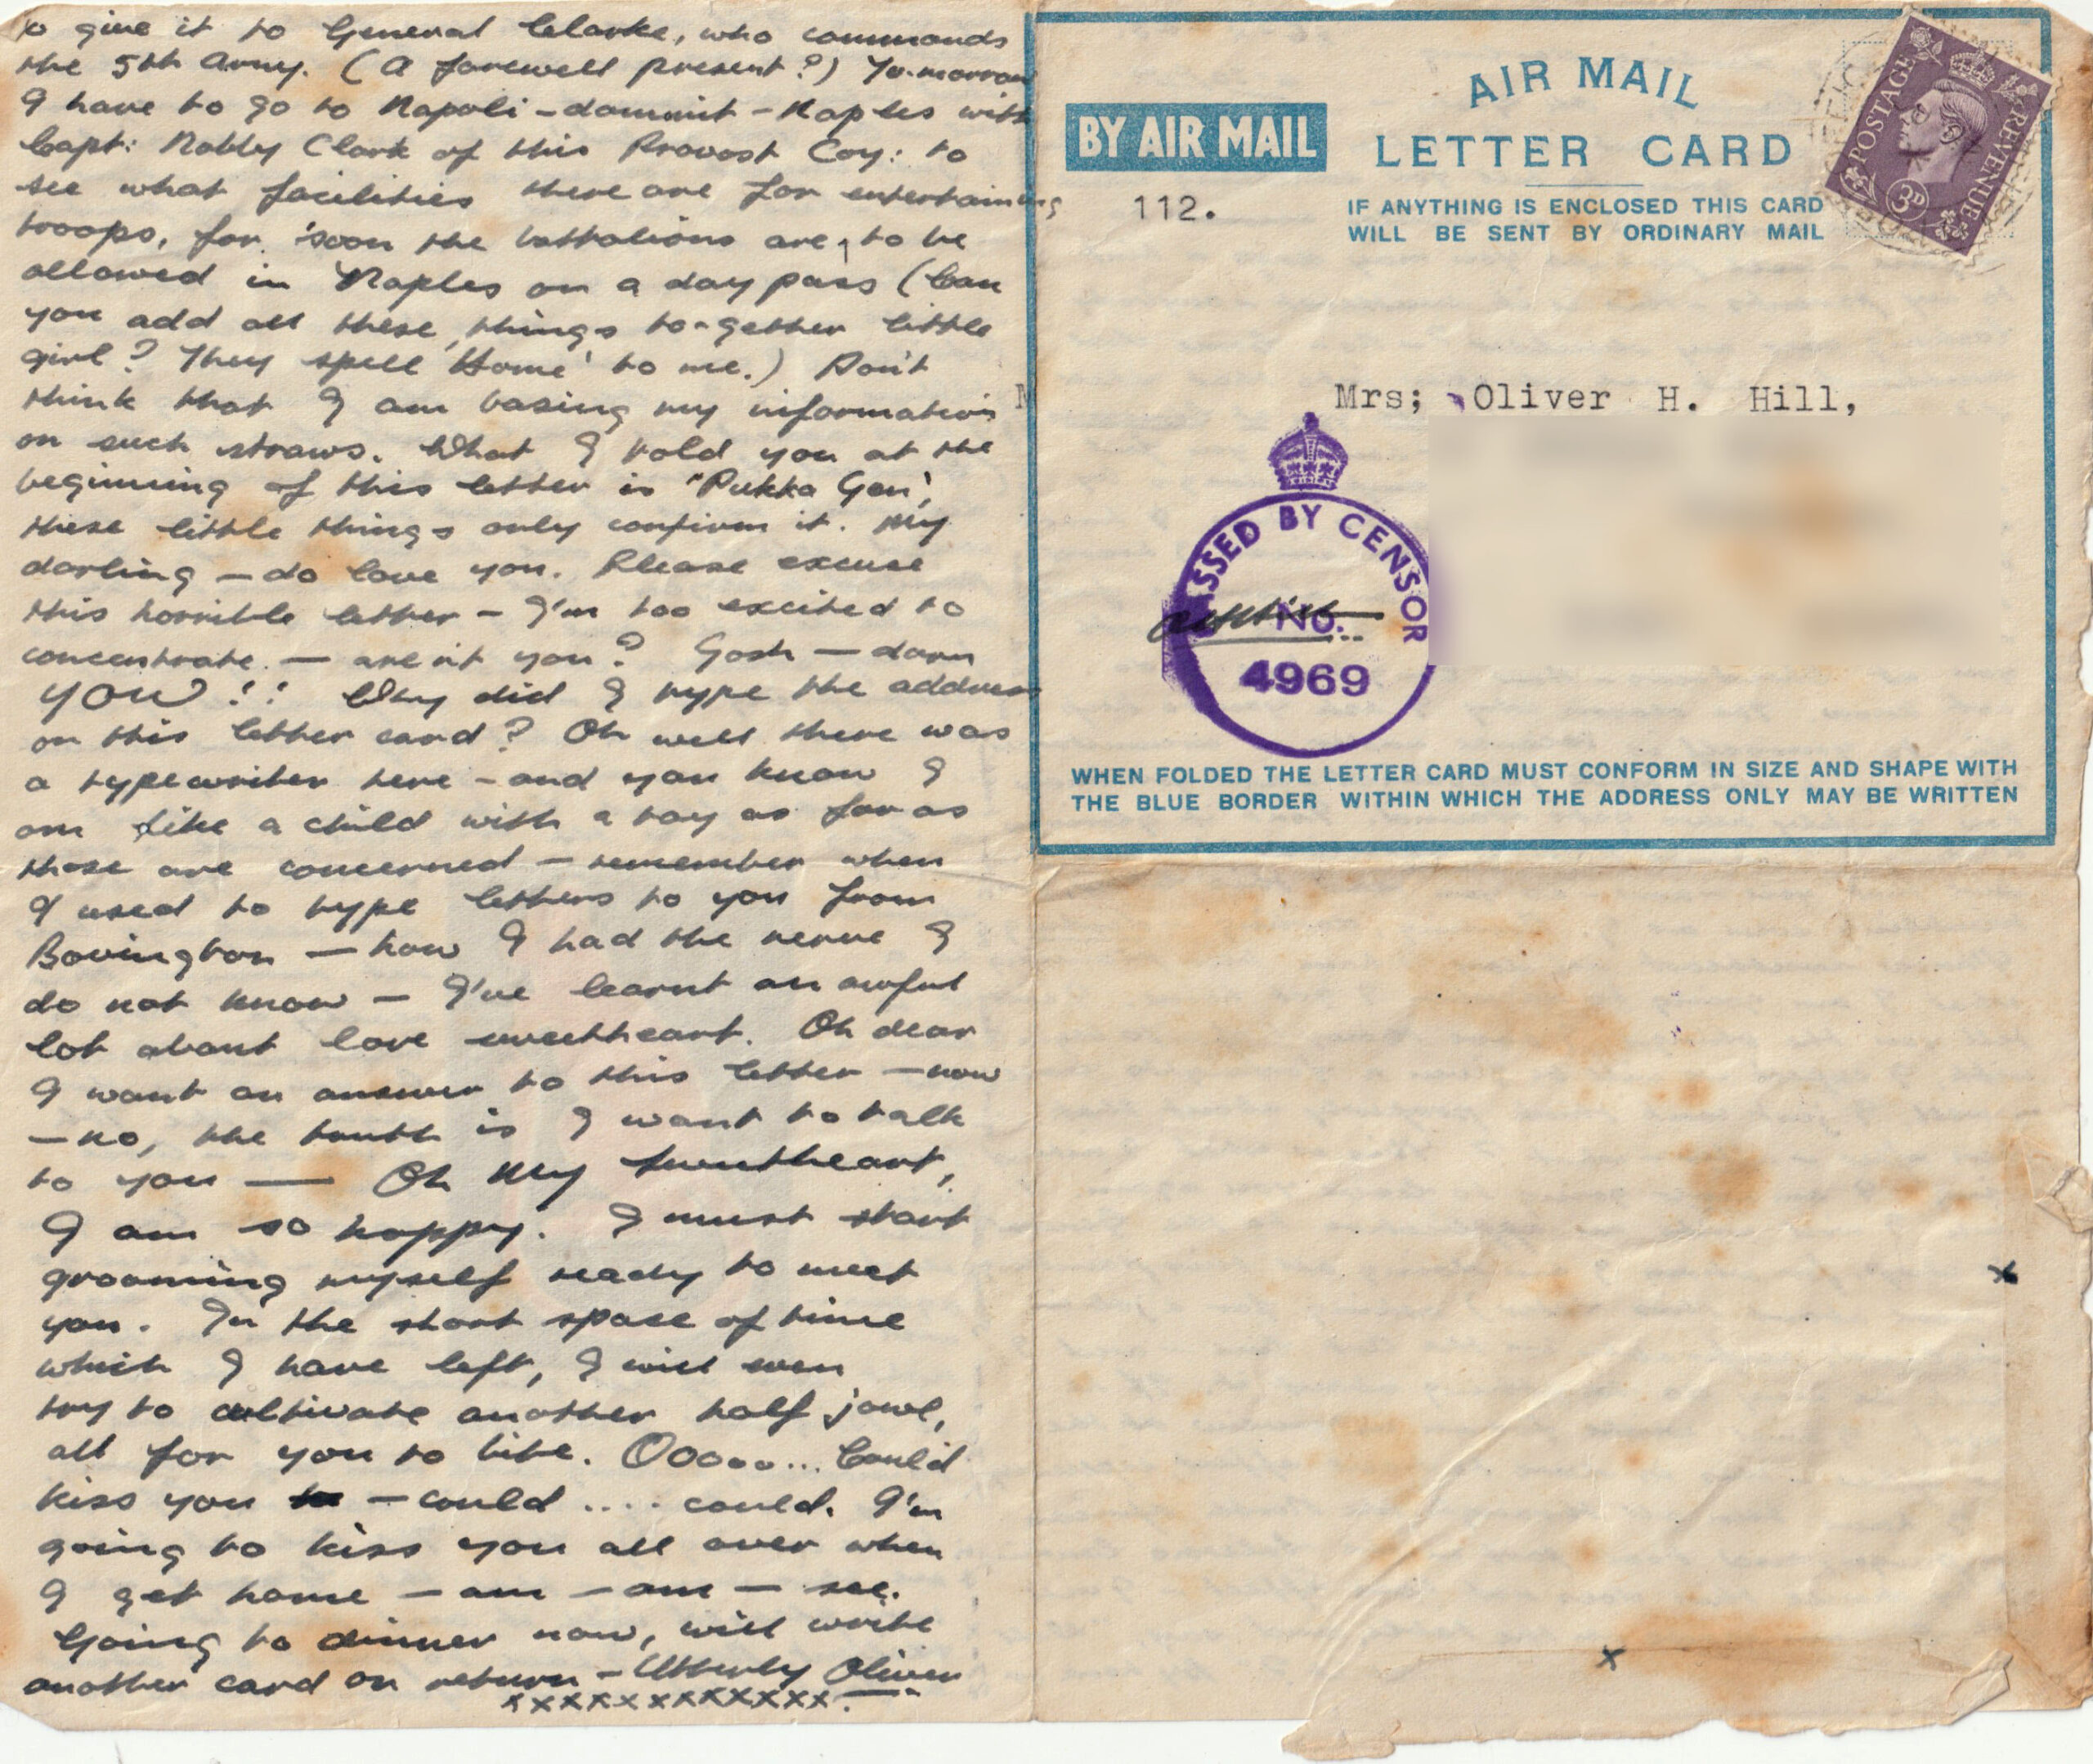 to give it to General Clarke, who commands
the 5th Army. (A farewell present?) To-morrow
I have to go to Napoli – dammit – Naples with
Capt: Nobby Clark of this Provost Coy: to
see what facilities there are for entertaining
troops, for soon the battalions are to be
allowed in Naples on a day pass (Can
you add all these things to-gether little
girl? They spell 'Home' to me.) Don't
think that I am basing my information
on such straws. What I told you at the
beginning of this letter is "Pukka Gen',
these little things only confirm it. My
darling – do love you. Please excuse
this horrible letter – I'm too excited to
concentrate. – aren't you? Gosh – darn
YOU!! Why did I type the address
on this letter card? Oh well there was
a typewriter here – and you know I
am like a child with a toy as far as
those are concerned – remember when
I used to type letters to you from
Bovington – how I had the nerve I
do not know – I've learnt an awful
lot about love sweetheart. Oh dear
I want an answer to this letter – now
– no, the truth is I want to talk
to you — Oh my sweetheart,
I am so happy. I must start
grooming myself ready to meet
you. In the short space of time
which I have left, I will even
try to cultivate another half jowl,
all for you to bite. Ooooo... Could
kiss you – could .... could. I'm
going to kiss you all over when
I get home – am – am – see.
Going to dinner now, will write
another card on return – Utterly Oliver
xxxxxxxxxxxxxx.
AIR MAIL
LETTER CARD
BY AIR MAIL
112.
IF ANYTHING IS ENCLOSED THIS CARD
WILL BE SENT BY ORDINARY MAIL
POSTAGE
REVENUE
3D
Mrs; Oliver H. Hill,
M
SSED BY CENSOR
No.
4969
WHEN FOLDED THE LETTER CARD MUST CONFORM IN SIZE AND SHAPE WITH
THE BLUE BORDER WITHIN WHICH THE ADDRESS ONLY MAY BE WRITTEN
x
x